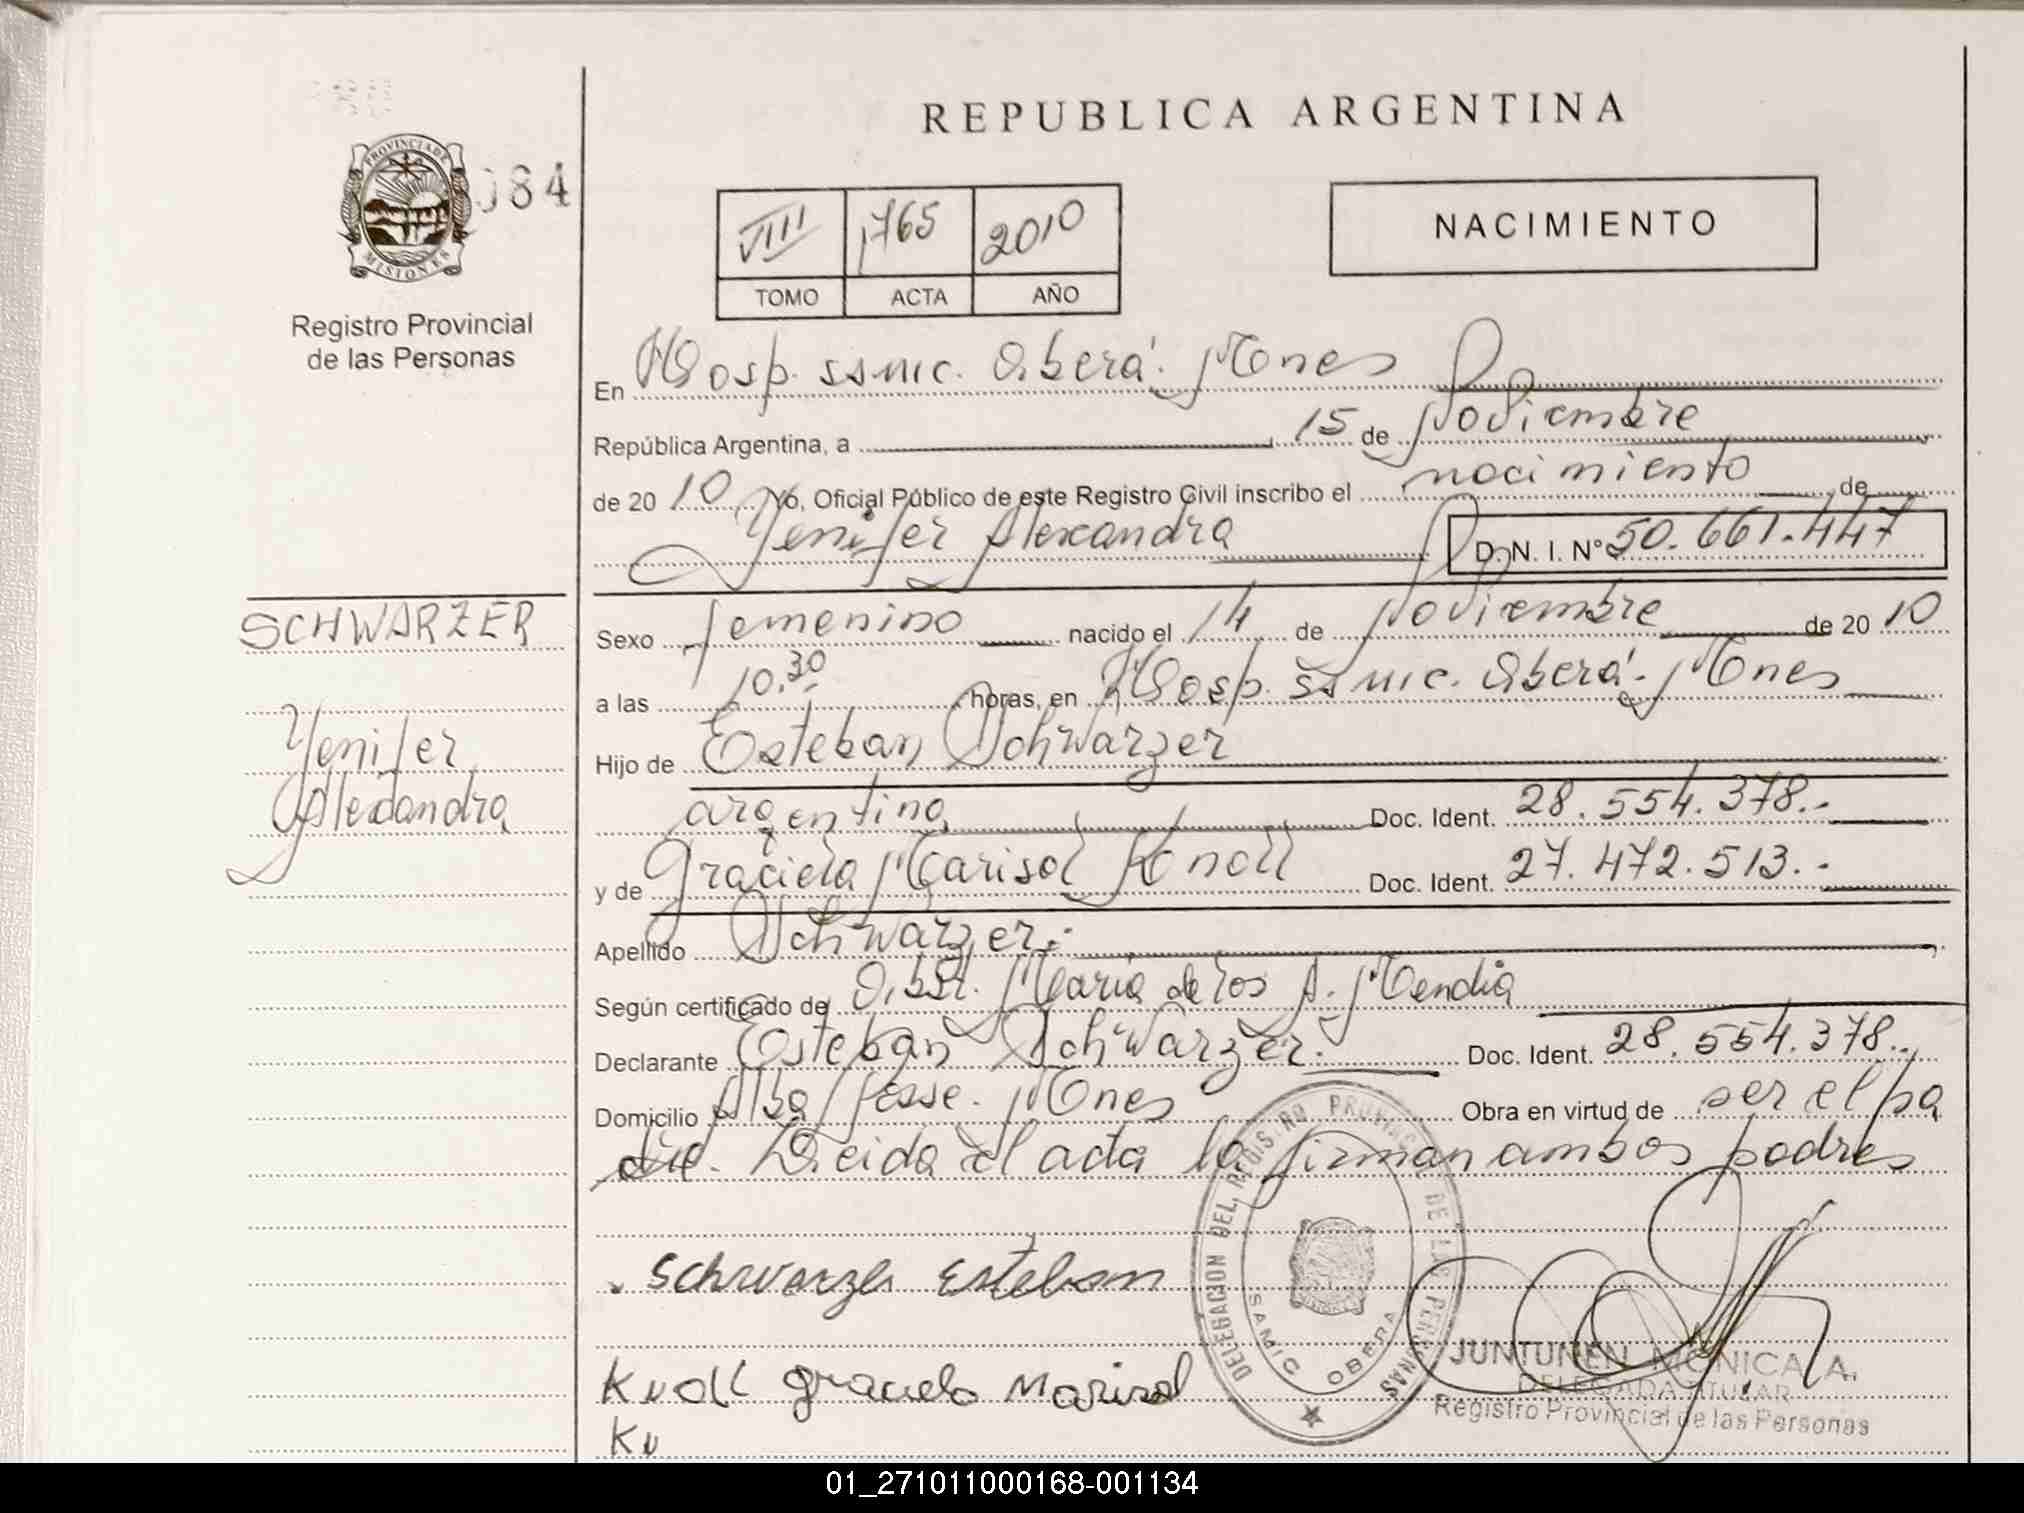 REPUBLICA ARGENTINA
PROVINCIA DE
MISIONES
084
Registro Provincial
de las Personas
VIII 1765 2010
TOMO ACTA AÑO
NACIMIENTO
En Hosp. ssmic. Oberá. Mnes
República Argentina, a 15 de Noviembre
de 20 10 Yo, Oficial Público de este Registro Civil inscribo el nacimiento de
Yenifer Alexandra D. N. I. N° 50.661.447
SCHWARZER
Yenifer
Alexandra
Sexo femenino nacido el 14 de Noviembre de 20 10
a las 10.30 horas, en Hosp. ssmic. Oberá. Mnes
Hijo de Esteban Schwarzer
argentino Doc. Ident. 28.554.378.-
y de Graciela Marisol Knoll Doc. Ident. 27.472.513.-
Apellido Schwarzer.-
Según certificado de Obst. María de los A. Mendia
Declarante Esteban Schwarzer.- Doc. Ident. 28.554.378.-
Domicilio Alba Posse. Mnes Obra en virtud de ser el pa
dre. Leida el acta la firman ambos padres
Schwarzer Esteban
Knoll graciela Marisol
Kn
DELEGACION DEL REGISTRO PROVINCIAL DE LAS PERSONAS
SAMIC OBERA
JUNTUNEN MONICA A.
DELEGADA TITULAR
Registro Provincial de las Personas
01_271011000168-001134